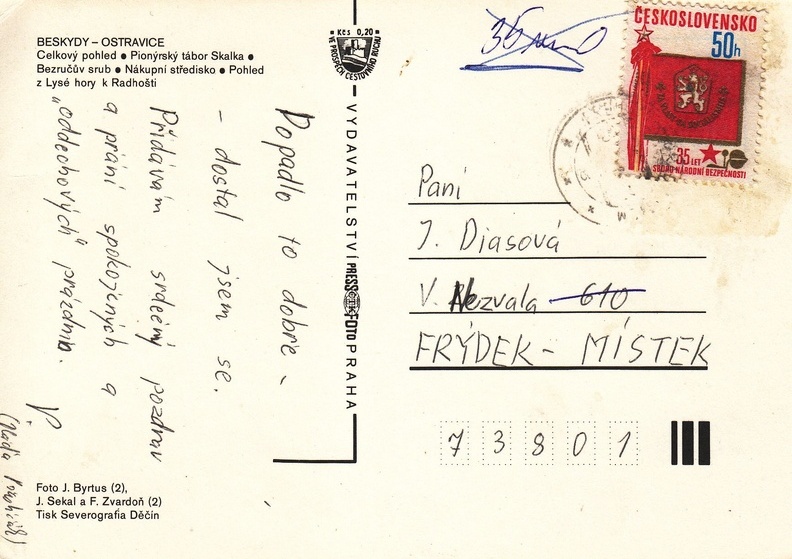 BESKYDY – OSTRAVICE
Celkový pohled ● Pionýrský tábor Skalka ●
Bezručův srub ● Nákupní středisko ● Pohled
z Lysé hory k Radhošti
Kčs 0,20
VE PROSPĚCH CESTOVNÍHO RUCHU
Dopadlo to dobře -
- dostal jsem se.
Přidávám srdečný pozdrav
a přání spokojených a
"oddechových" prázdnin.
V.
VYDAVATELSTVÍ PRESSFOTO PRAHA
ČESKOSLOVENSKO
50h
35 LET
SBORU NÁRODNÍ BEZPEČNOSTI
Paní
J. Diasová
V. Nezvala 610
FRÝDEK - MÍSTEK
7 3 8 0 1
Foto J. Byrtus (2),
J. Sekal a F. Zvardoň (2)
Tisk Severografia Děčín